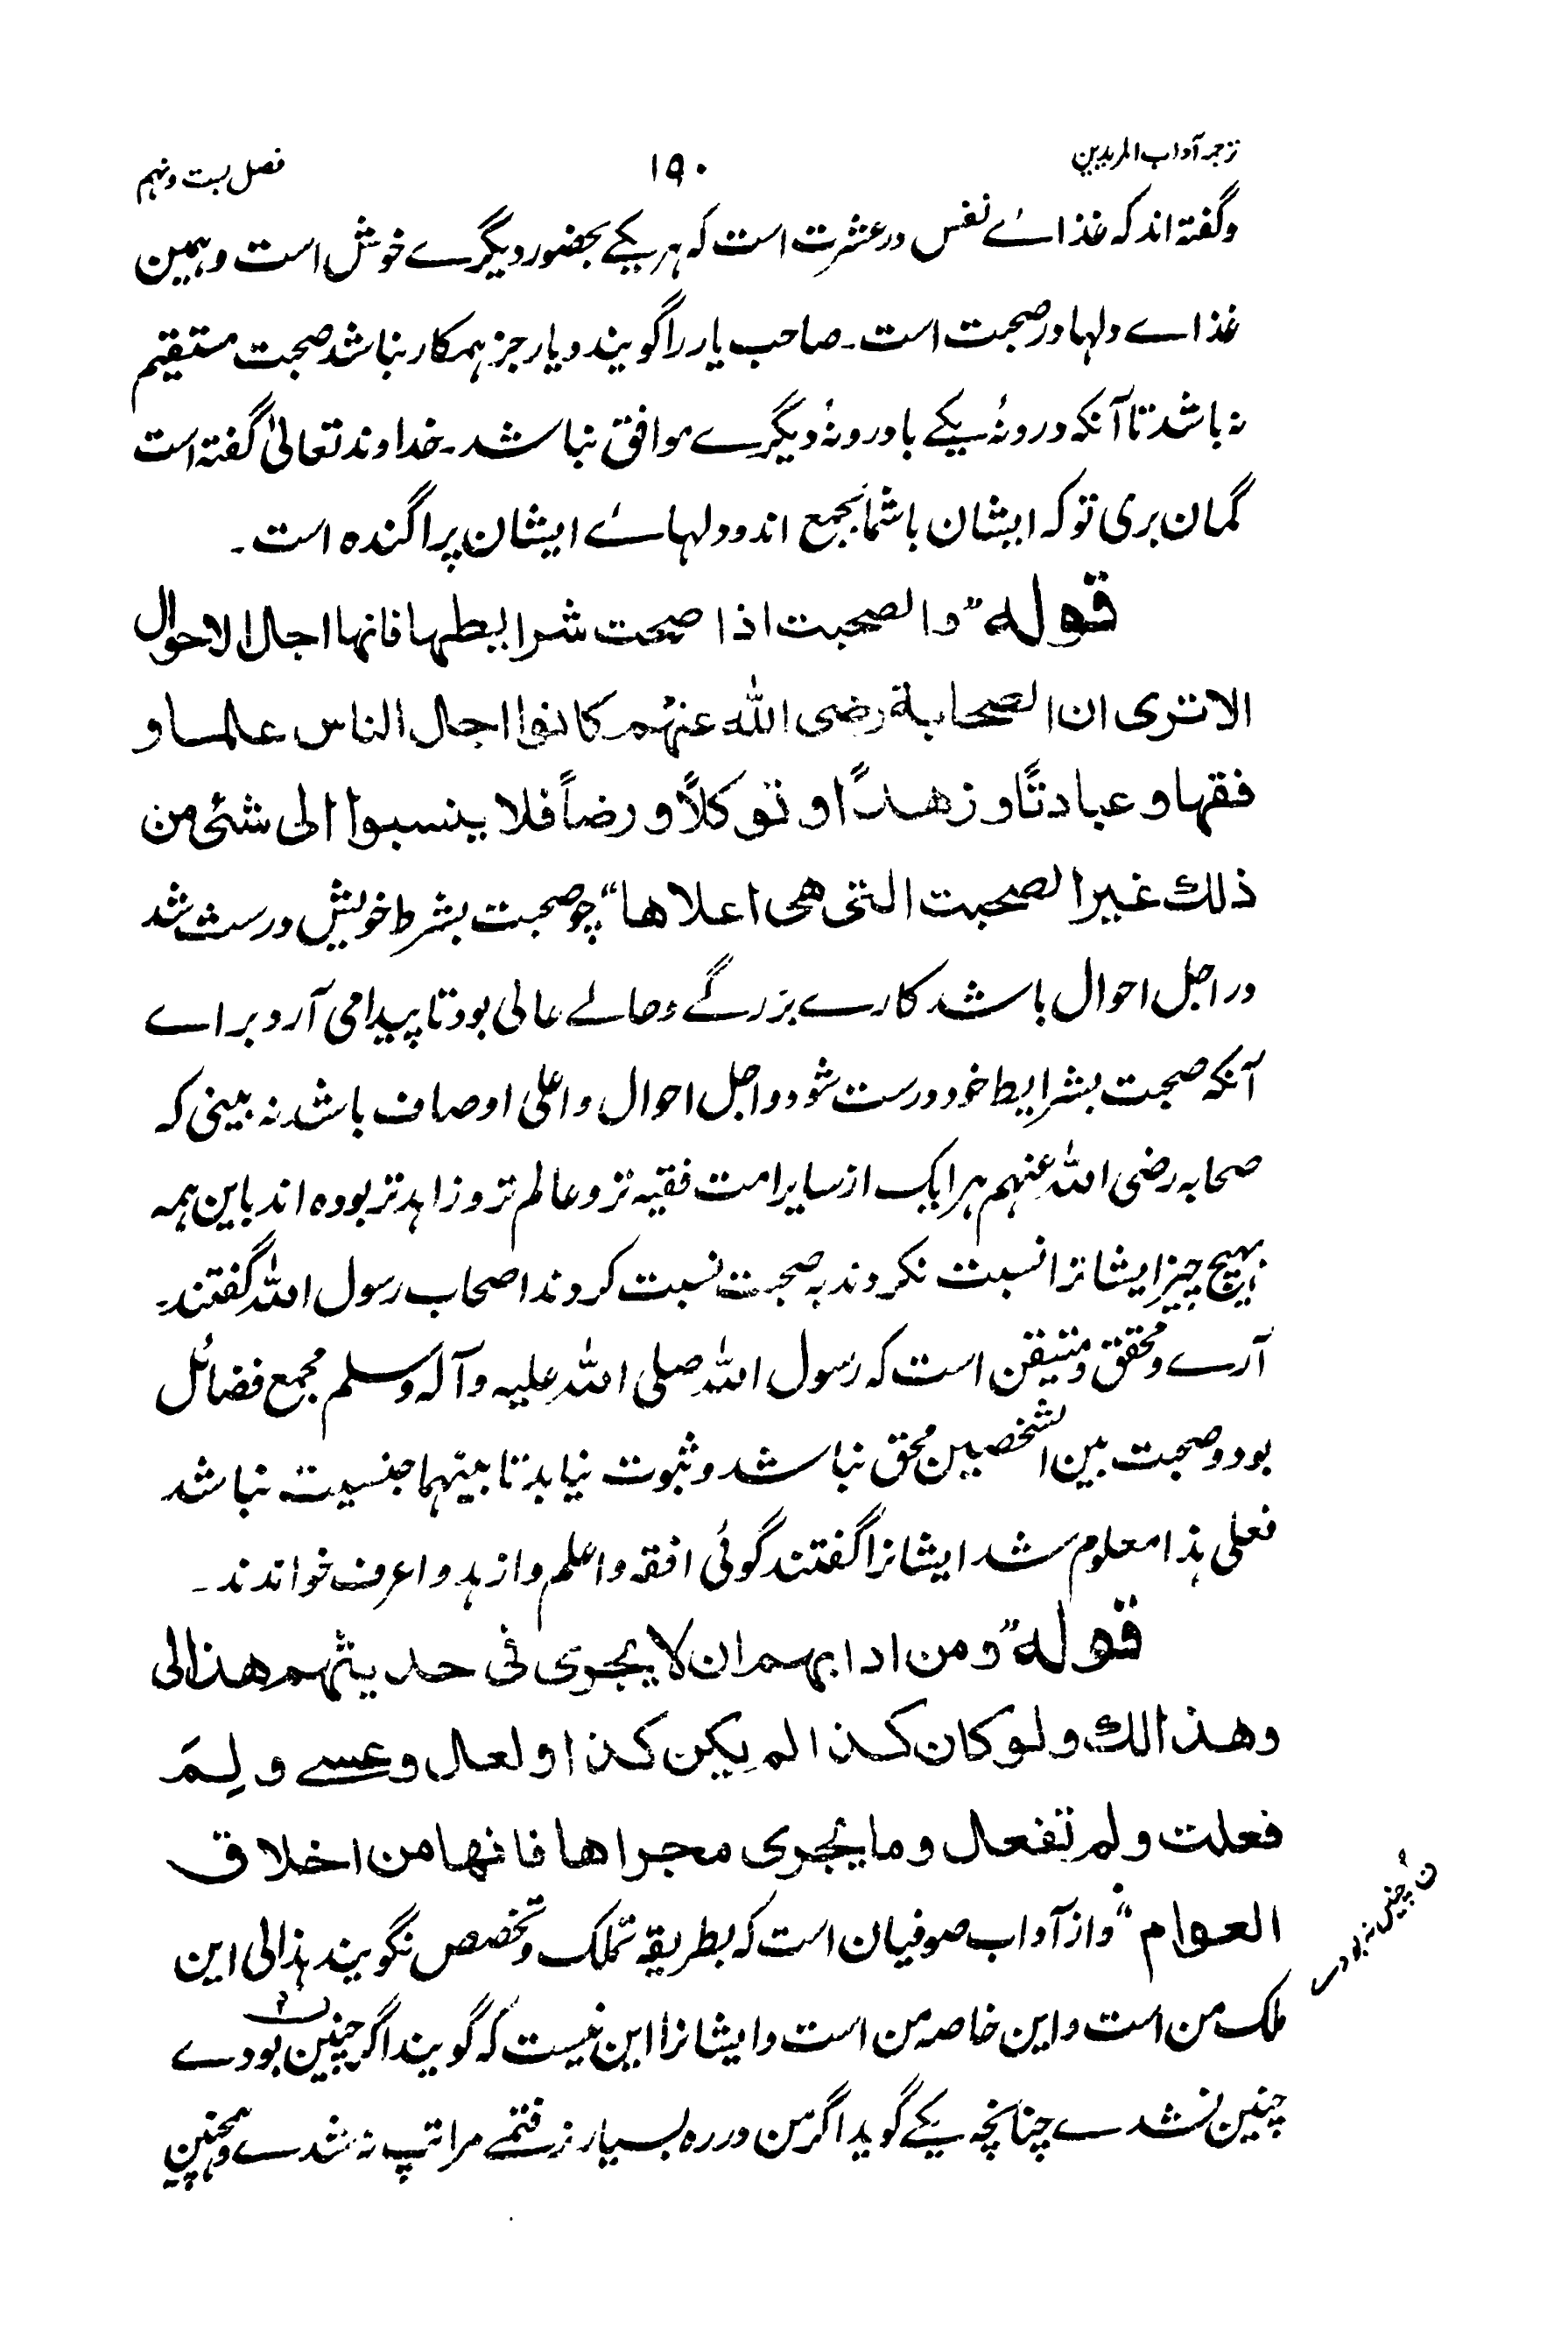 ترجمہ آداب المریدین ۱۹۰ فصل بست و نہم
وگفتہ اند کہ غذاۓ نفس در عشرت است کہ ہر یکے بحضور دیگرے خوش است و ہمین
غذاے دلہا در صحبت است۔ صاحب یار را گویند و یار جز ہمکار نباشد صحبت مستقیم
نہ باشد تا آنکہ درونۂ یکے با درونۂ دیگرے موافق نباشد۔ خداوند تعالیٰ گفتہ است
گمان بری تو کہ ایشان باشما بجمع اند و دلہاۓ ایشان پراگندہ است۔
قولہ "والصحبت اذا صحت شرایطہا فانہا اجل الاحوال
الا تری ان الصحابة رضی اللہ عنہم کانوا اجل الناس علما و
فقہا و عبادتًا و زھدًا و توکلاً و رضاً فلا ینسبوا الی شئی من
ذلك غیر الصحبت التی ھی اعلاھا" چو صحبت بشرط خویش درست شد
در اجل احوال باشد کارے بزرگے و حالے عالی بود تا پیدا می آرد براے
آنکہ صحبت بشرایط خود درست شود و اجل احوال و اعلی اوصاف باشد نہ بینی کہ
صحابہ رضی اللہ عنہم ہر ایک از سایر امت فقیہ تر و عالم تر و زاہد تر بودہ اند باین ہمہ
بہیچ چیز ایشانرا نسبت نکردند بہ صحبت نسبت کردند اصحاب رسول اللہ گفتند۔
آرے و محقق و متیقن است کہ رسول اللہ صلی اللہ علیہ و آلہ وسلم مجمع فضائل
بود و صحبت بین الشخصین محق نباشد و ثبوت نیابد تا بینہما جنسیت نباشد
فعلی ہذا معلوم شد ایشانرا گفتند گوئی افقہ و اعلم و ازہد و اعرف خواندند۔
قولہ "ومن ادابہم ان لا یجری فی حدیثہم ھذا لی
وھذا لك ولو کان کذا لم یکن کذا ولعل وعسے ولِمَ
فعلت ولم تفعل وما یجری مجراھا فانہا من اخلاق
العوام" و از آداب صوفیان است کہ بطریقہ تملک و تخصص نگویند ہذا لی این
ملک من است و این خاصہ من است و ایشانرا این نیست کہ گویند اگر چنین بودے
چنین نشدے چنانچہ یکے گوید اگر من در رہ بسیار رفتمے مراتپ نہ شدے و ہمچنین
ن چنین نہ بودے